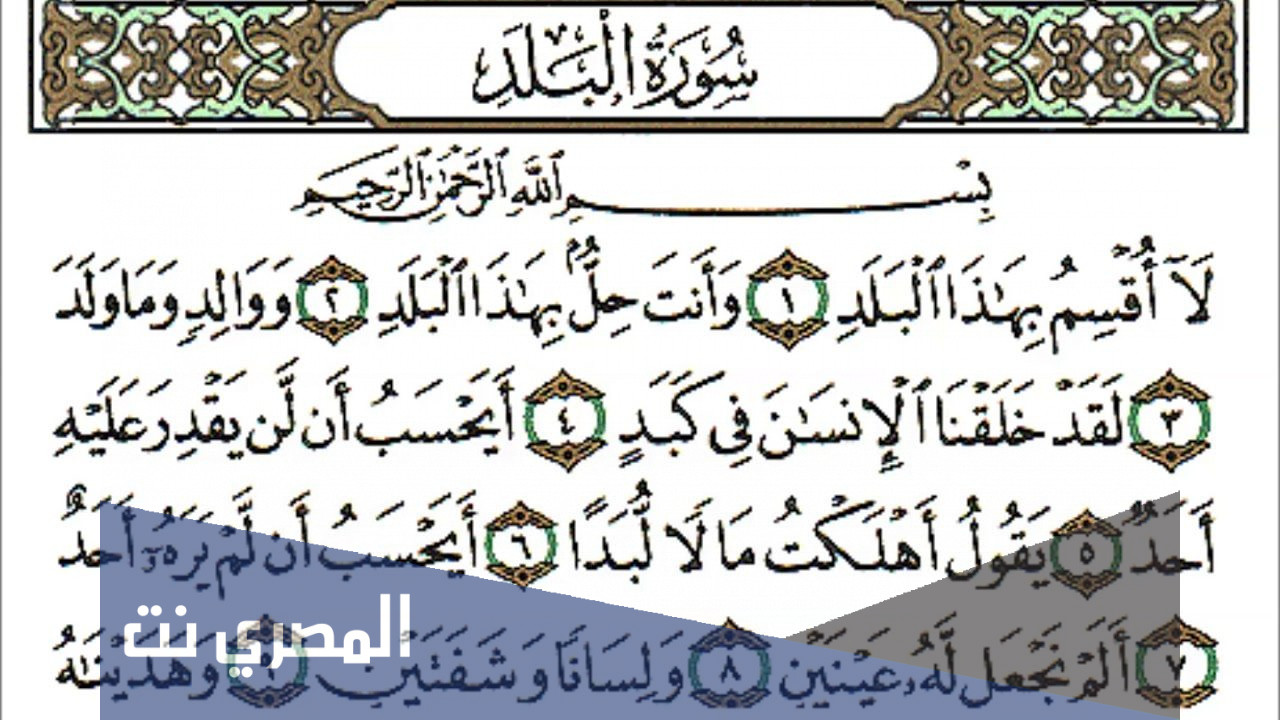 سُورَةُ الْبَلَدِ
بِسْمِ ٱللَّهِ ٱلرَّحْمَٰنِ ٱلرَّحِيمِ
لَآ أُقْسِمُ بِهَٰذَا ٱلْبَلَدِ ١ وَأَنتَ حِلٌّۢ بِهَٰذَا ٱلْبَلَدِ ٢ وَوَالِدٍ وَمَا وَلَدَ
٣ لَقَدْ خَلَقْنَا ٱلْإِنسَٰنَ فِى كَبَدٍ ٤ أَيَحْسَبُ أَن لَّن يَقْدِرَ عَلَيْهِ
أَحَدٌ ٥ يَقُولُ أَهْلَكْتُ مَالًا لُّبَدًا ٦ أَيَحْسَبُ أَن لَّمْ يَرَهُۥٓ أَحَدٌ
٧ أَلَمْ نَجْعَل لَّهُۥ عَيْنَيْنِ ٨ وَلِسَانًا وَشَفَتَيْنِ ٩ وَهَدَيْنَٰهُ
المصري نت